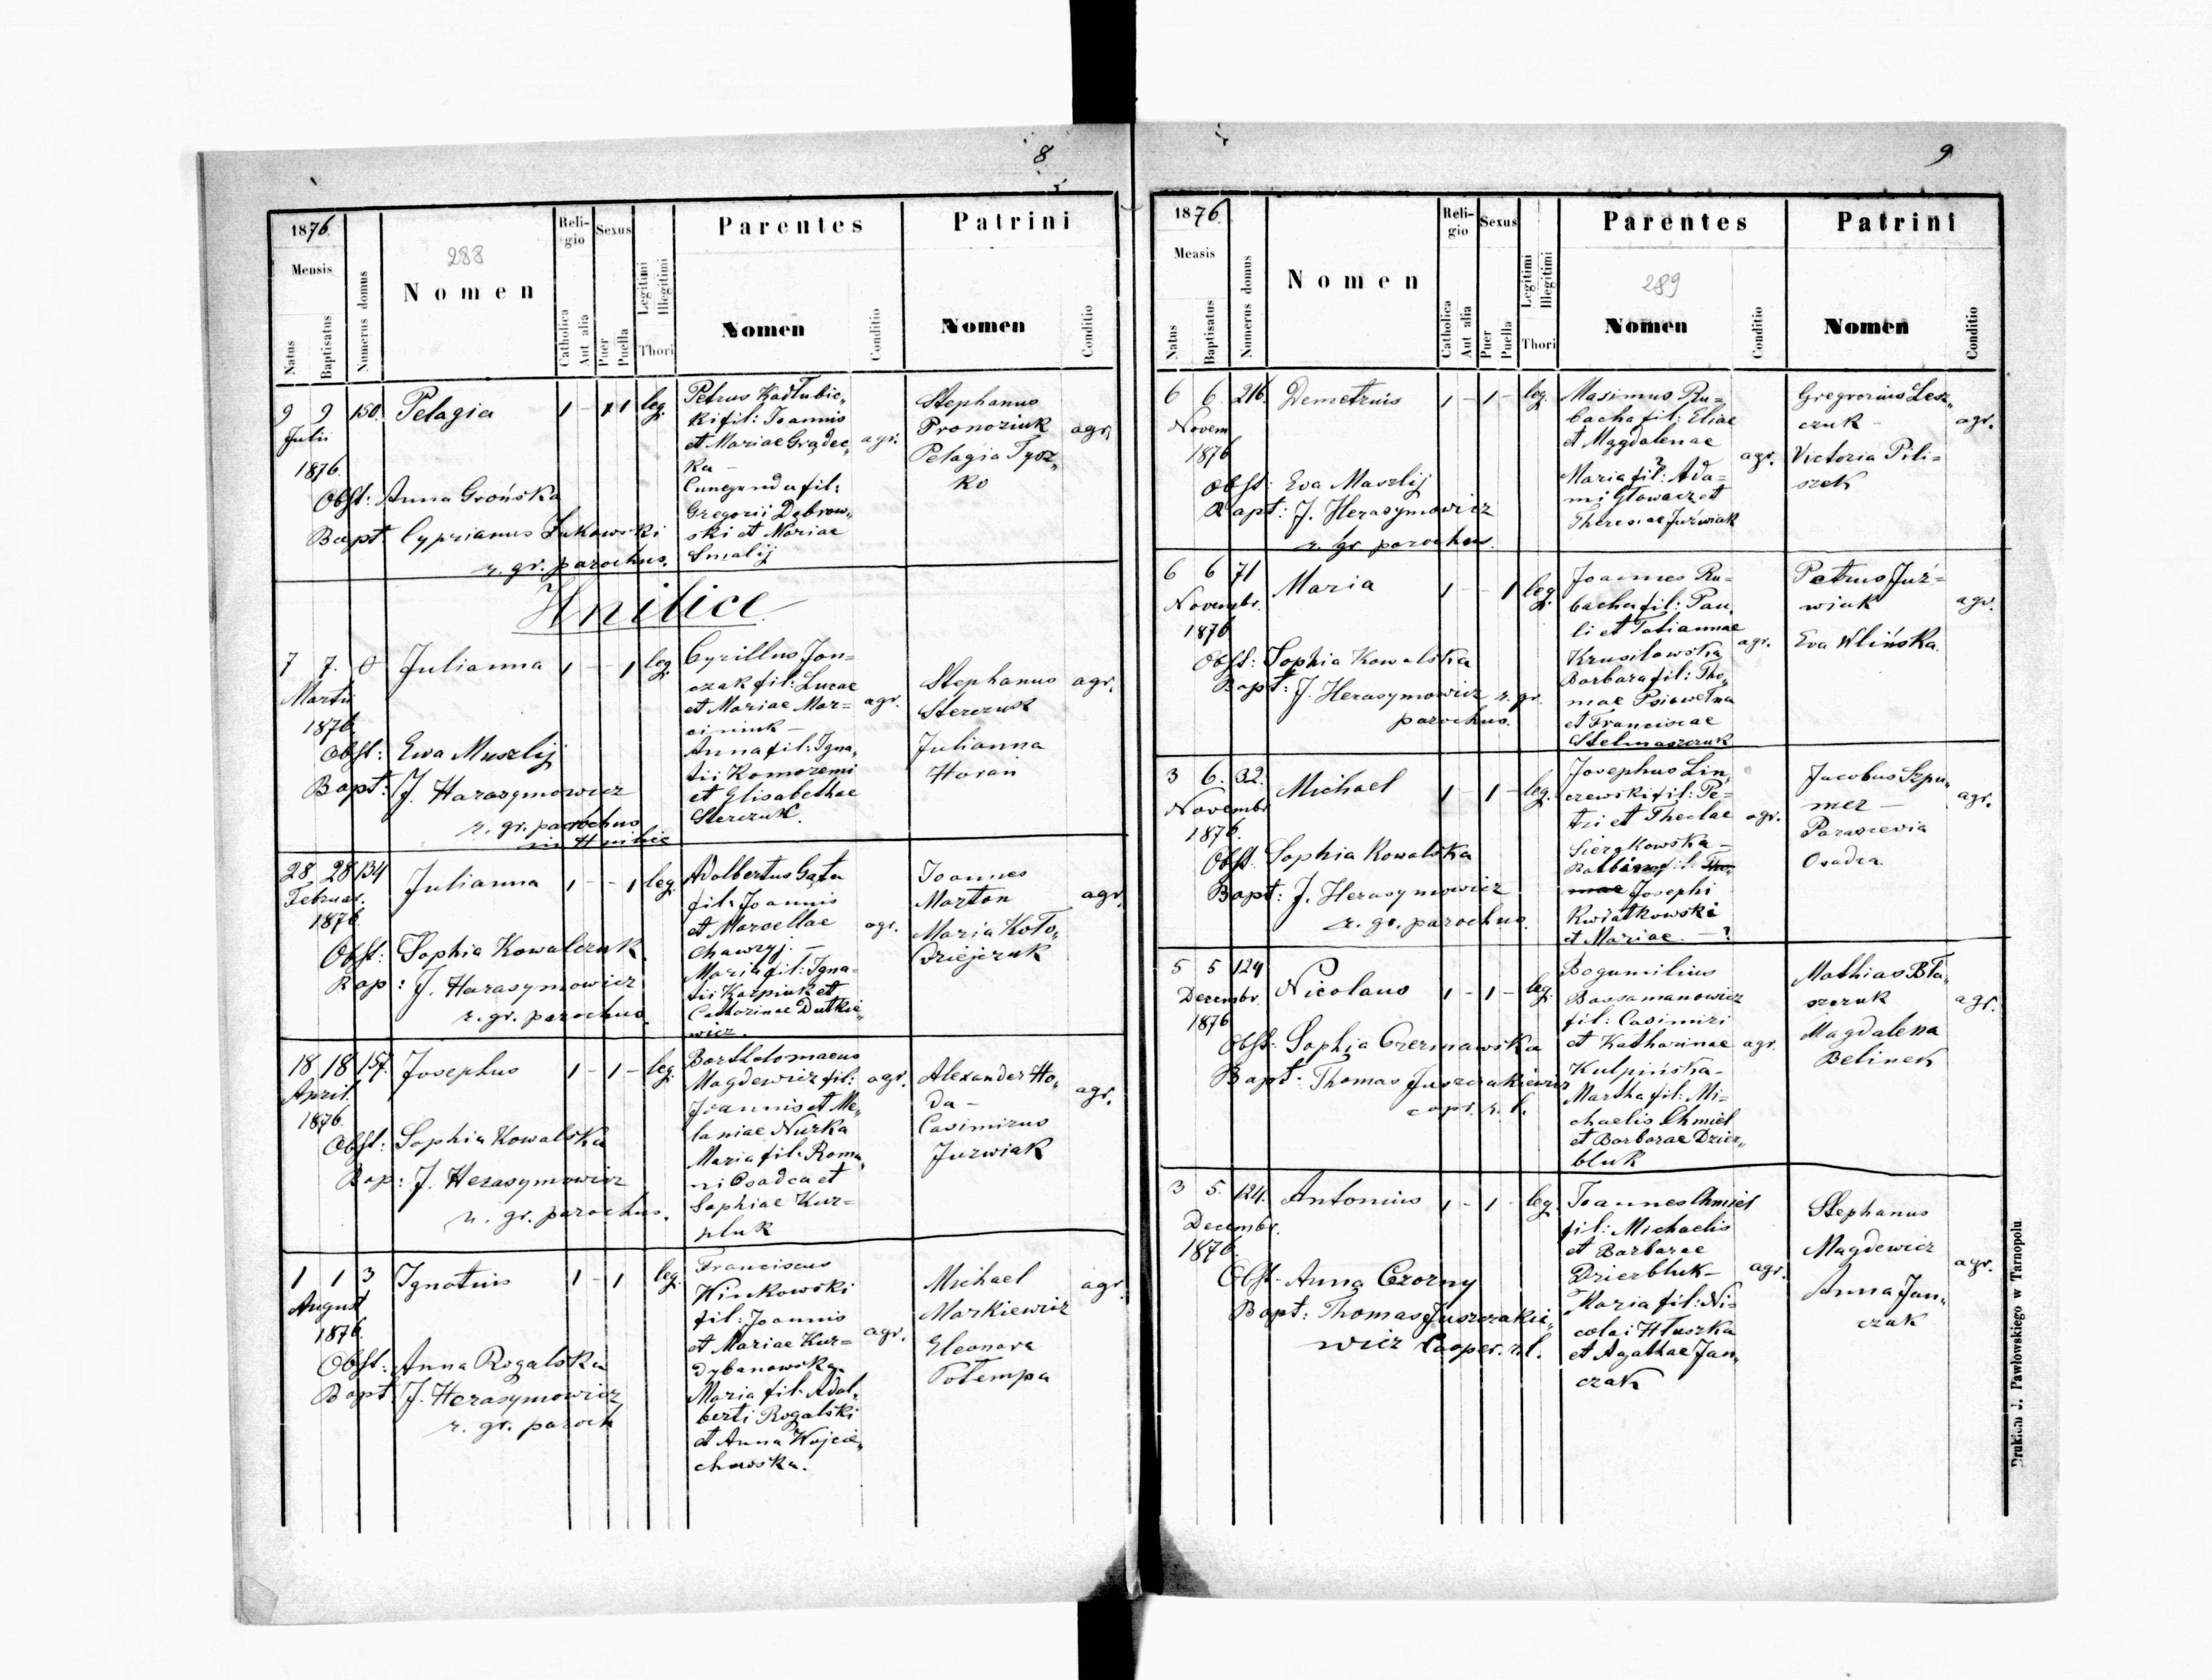 8
1876.
Mensis
Natus
Baptisatus
Numerus domus
283
Nomen
Reli-
gio
Catholica
Aut alia
Sexus
Puer
Puella
Legitimi
Illegitimi
Thori
Parentes
Nomen
Conditio
Patrini
Nomen
Conditio
9 9 150. Pelagia 1 - 1 leg.
Julii
1876.
Obst: Anna Grońska
Bapt. Cyprianus Łukowski
r. gr. parochus.
Petrus Kadłubic„
ki fil: Joannis
et Mariae Grądec„
ka -
Cunegunda fil:
Gregorii Dąbrow„
ski et Mariae
Smalij
agr.
Stephanus
Pronoziuk
Pelagia Tysz„
ko
agr.
Hnilice
7 7. 0 Julianna 1 - - 1 leg.
Martii
1876.
Obst: Ewa Muszlij
Bapt: J. Harasymowicz
r. gr. parochus
in Hnilice
Cyrillus Jon=
czak fil: Lucae
et Mariae Mar=
ciniuk -
Anna fil: Igna„
tii Komozemi
et Elisabethae
Sterczuk.
agr.
Stephanus
Sterczuk
Julianna
Horań
agr.
28 28 134 Julianna 1 - - 1 leg.
Februar.
1876.
Obst: Sophia Kowalczuk.
Bap: J. Harasymowicz
r. gr. parochus.
Adalbertus Gąta
fil: Joannis
et Marcellae
Chawryj. -
Maria fil: Igna=
tii Karpiuk et
Catharinae Dutkie„
wicz.
agr.
Joannes
Marton
Maria Koło„
dziejczuk
agr.
18 18 157. Josephus 1 - 1 - leg.
April.
1876.
Obst: Sophia Kowalska
Bap: J. Herasymowicz
r. gr. parochus.
Bartholomaeus
Magdewicz fil:
Joannis et Me„
laniae Nurka
Maria fil: Roma„
ni Osadca et
Sophiae Kur=
pluk
agr.
Alexander Ho„
da -
Casimirus
Jurwiak
agr.
1 1 3 Ignatius 1 - 1 leg.
August
1876.
Obst: Anna Rogalska
Bapt. J. Herasymowicz
r. gr. paroch
Franciscus
Winkowski
fil: Joannis
et Mariae Kur=
dybanowska.
Maria fil: Adal„
berti Rogalski
et Anna Wojcie„
chowska.
agr.
Michael
Markiewicz
Eleonora
Potempa
agr.
9
1876.
Mensis
Natus
Baptisatus
Numerus domus
Nomen
Reli-
gio
Catholica
Aut alia
Sexus
Puer
Puella
Legitimi
Illegitimi
Thori
Parentes
289
Nomen
Conditio
Patrini
Nomen
Conditio
6 6. 216. Demetrius 1 - 1 - leg.
Novem
1876
Obst: Eva Maszlij
Bapt: J. Herasymowicz
r. gr. parochus.
Maximus Ru=
bacha fil: Eliae
et Magdalenae
?
Maria fil: Ada=
mi Głowacz et
Theresiae Juźwiak
agr.
Gregrorius Lesz„
czuk -
Victoria Pili=
szek
agr.
6 6 71 Maria 1 - - 1 leg.
Novembr.
1876
Obst: Sophia Kowalska
Bapt: J. Herasymowicz r. gr.
parochus.
Joannes Ru=
bacha fil: Pau„
li et Tatiannae
Krusilowska
Barbara fil: Tho„
mae Psiowełna
et Franciscae
Stelmaszczuk
agr.
Petrus Juź=
wiak
Eva Wlińska.
agr.
3 6. 32. Michael 1 - 1 - leg.
Novembr
1876.
Obst. Sophia Kowalska
Bapt: J. Herasymowicz
r. gr. parochus.
Josephus Lin„
czewski fil: Pe=
tri et Theclae
Siergkowska -
Balbina fil: Tho„
mae Josephi
Kwiatkowski
et Mariae. - ?
agr.
Jacobus Szpu„
mer -
Parascevia
Osadca
agr.
5 5 124 Nicolaus 1 - 1 - leg.
Decembr.
1876
Obst: Sophia Czerniawska
Bapt: Thomas Juszczakiewicz
coper. r. l.
Bogumilius
Bassamanowicz
fil: Casimiri
et Katharinae
Kulpińska-
Martha fil: Mi=
chaelis Chmiel
et Barbarae Dzier„
bluk
agr.
Mathias Bła„
szczuk
Magdalena
Belinek
agr.
3 5. 124. Antonius 1 - 1 - leg.
Decembr.
1876.
Obst. Anna Czorny
Bapt: Thomas Juszczakie„
wicz Cooper. r. l.
Joannes Chmiel
fil: Michaelis
et Barbarae
Dzierbluk-
Maria fil: Ni=
colai Hłuszka
et Agathae Jan„
czak
agr.
Stephanus
Magdewicz
Anna Jan„
czuk
agr.
Drukiem J. Pawłowskiego w Tarnopolu.